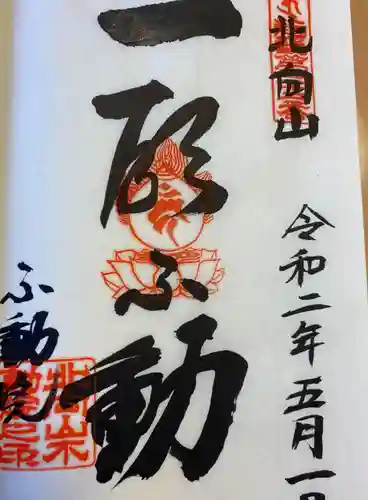 北向山
令和二年五月一日
一願不動
不動院